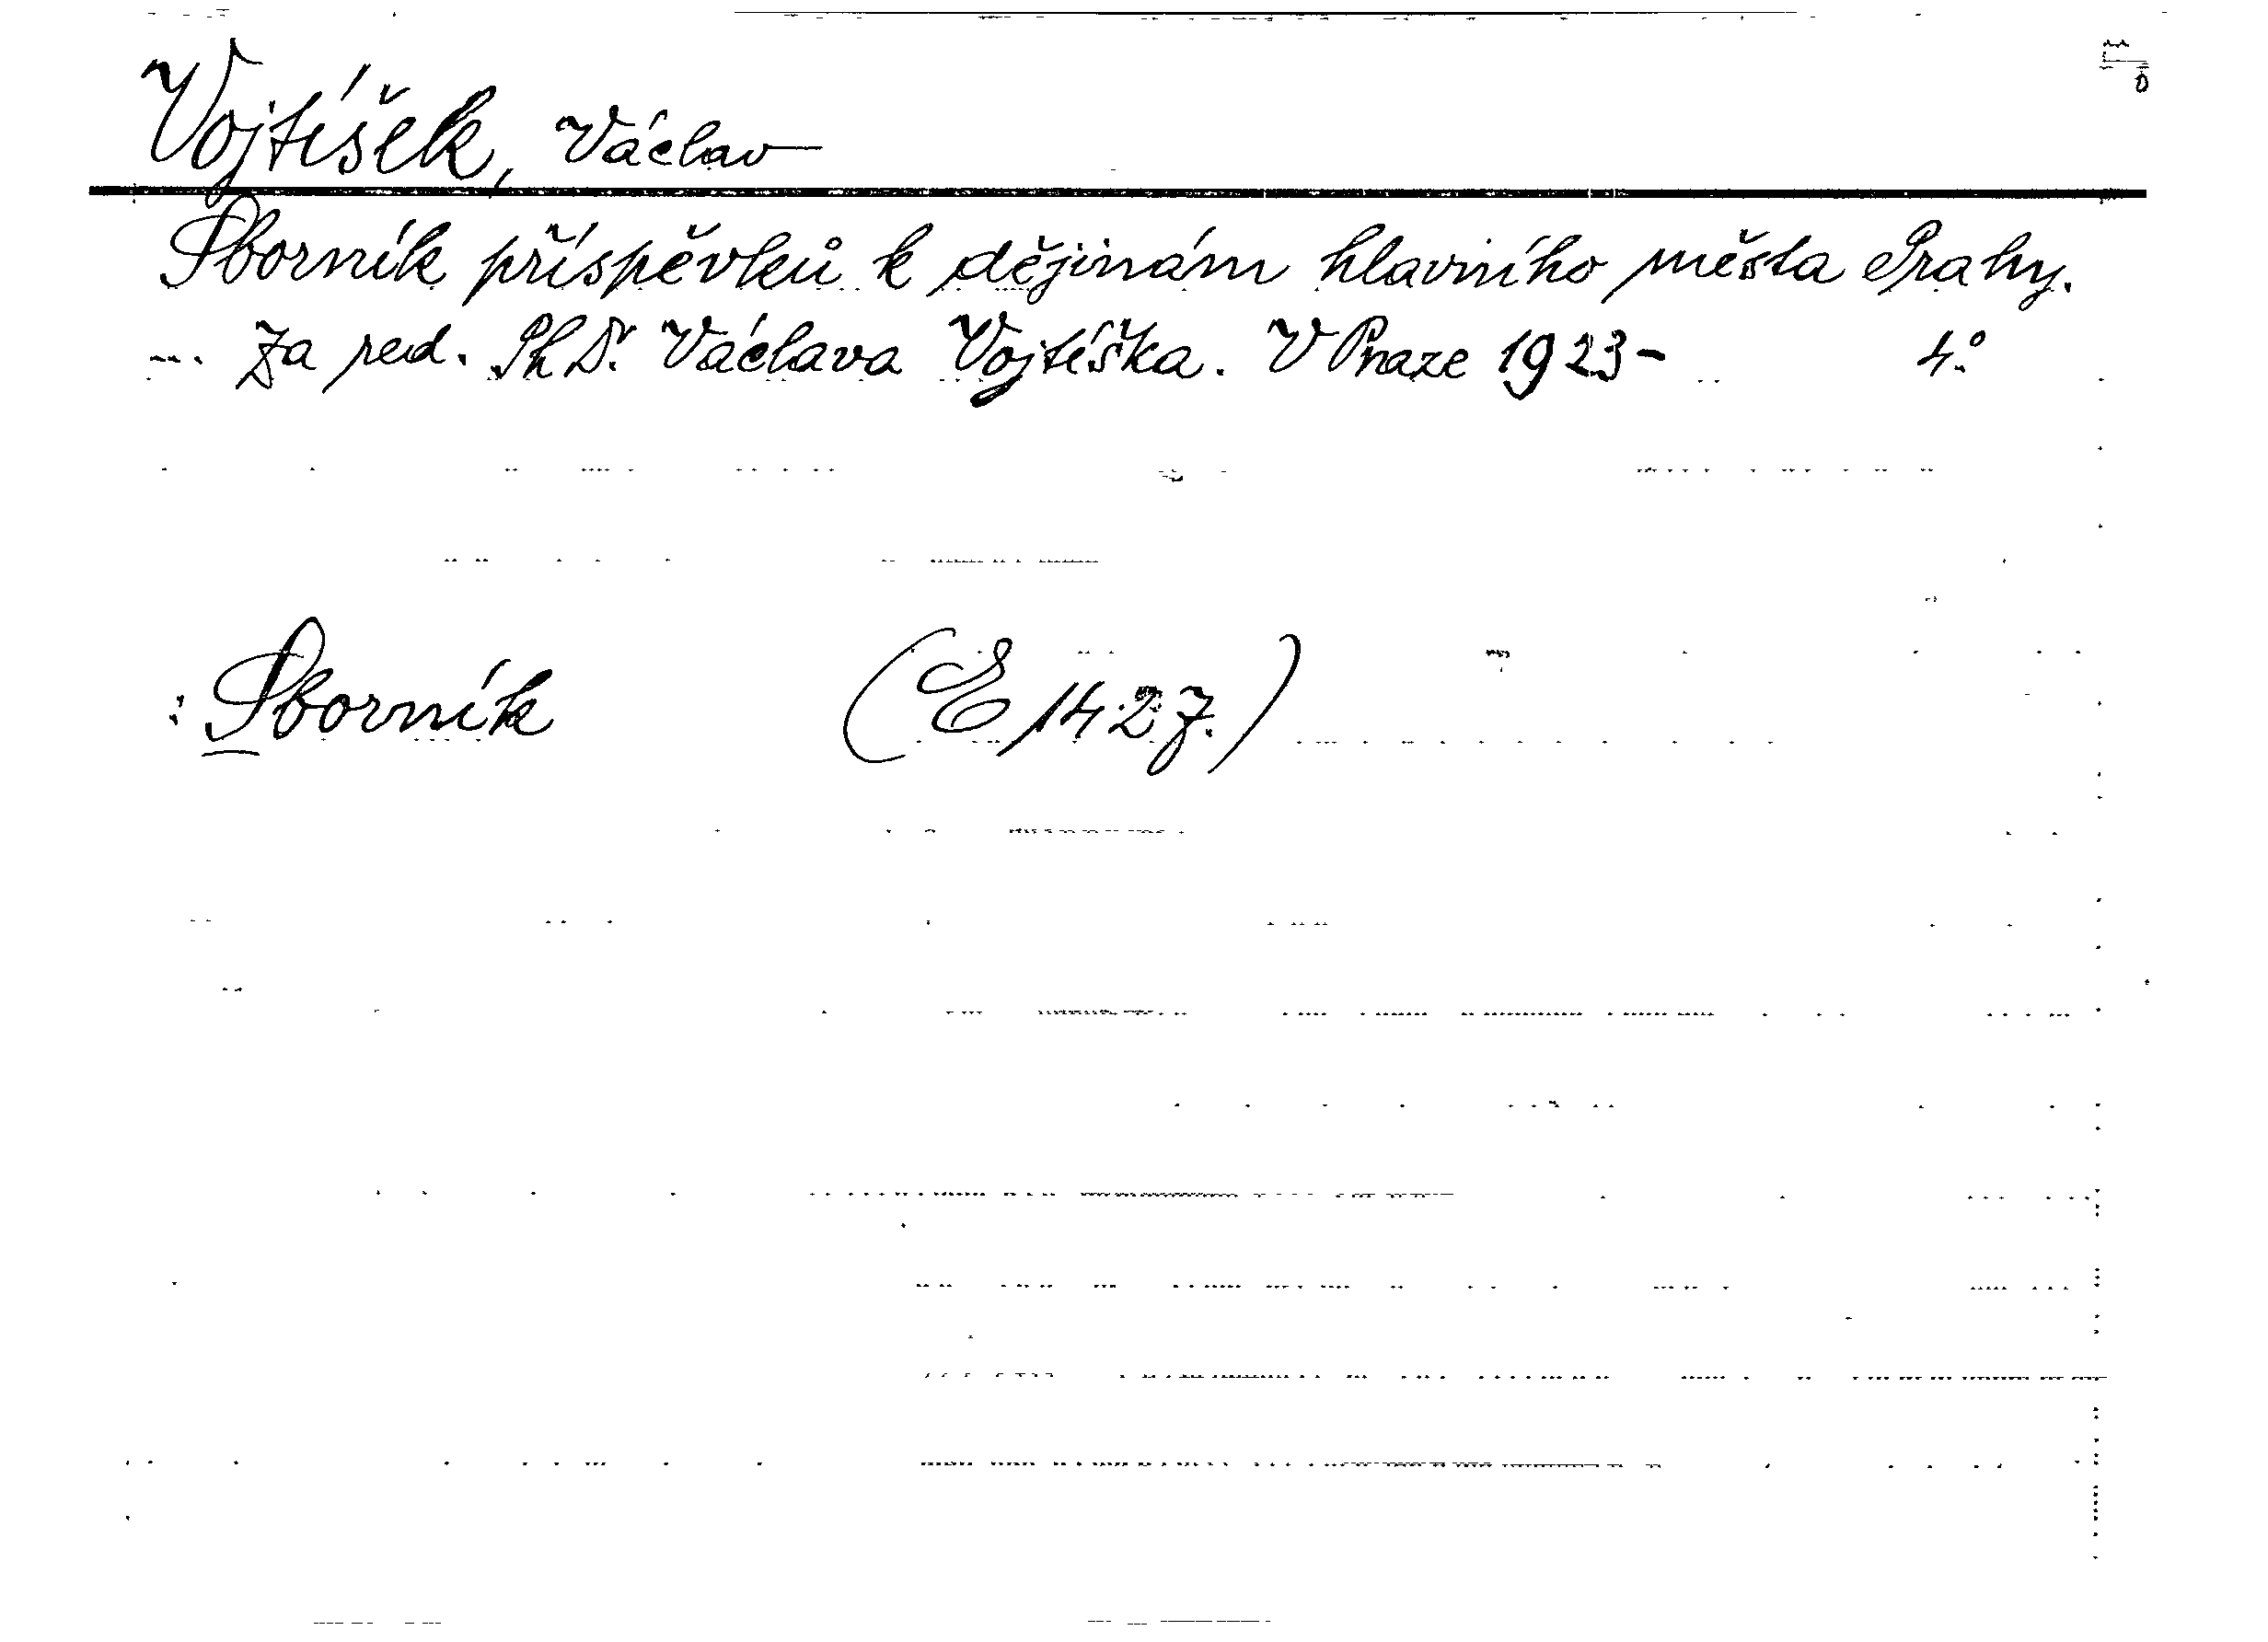 Vojtíšek, Václav
Sborník příspěvků k dějinám hlavního města Prahy.
... Za red. PhDr. Václava Vojtíška. V Praze 1923- 4.°
: Sborník (E 1427.)